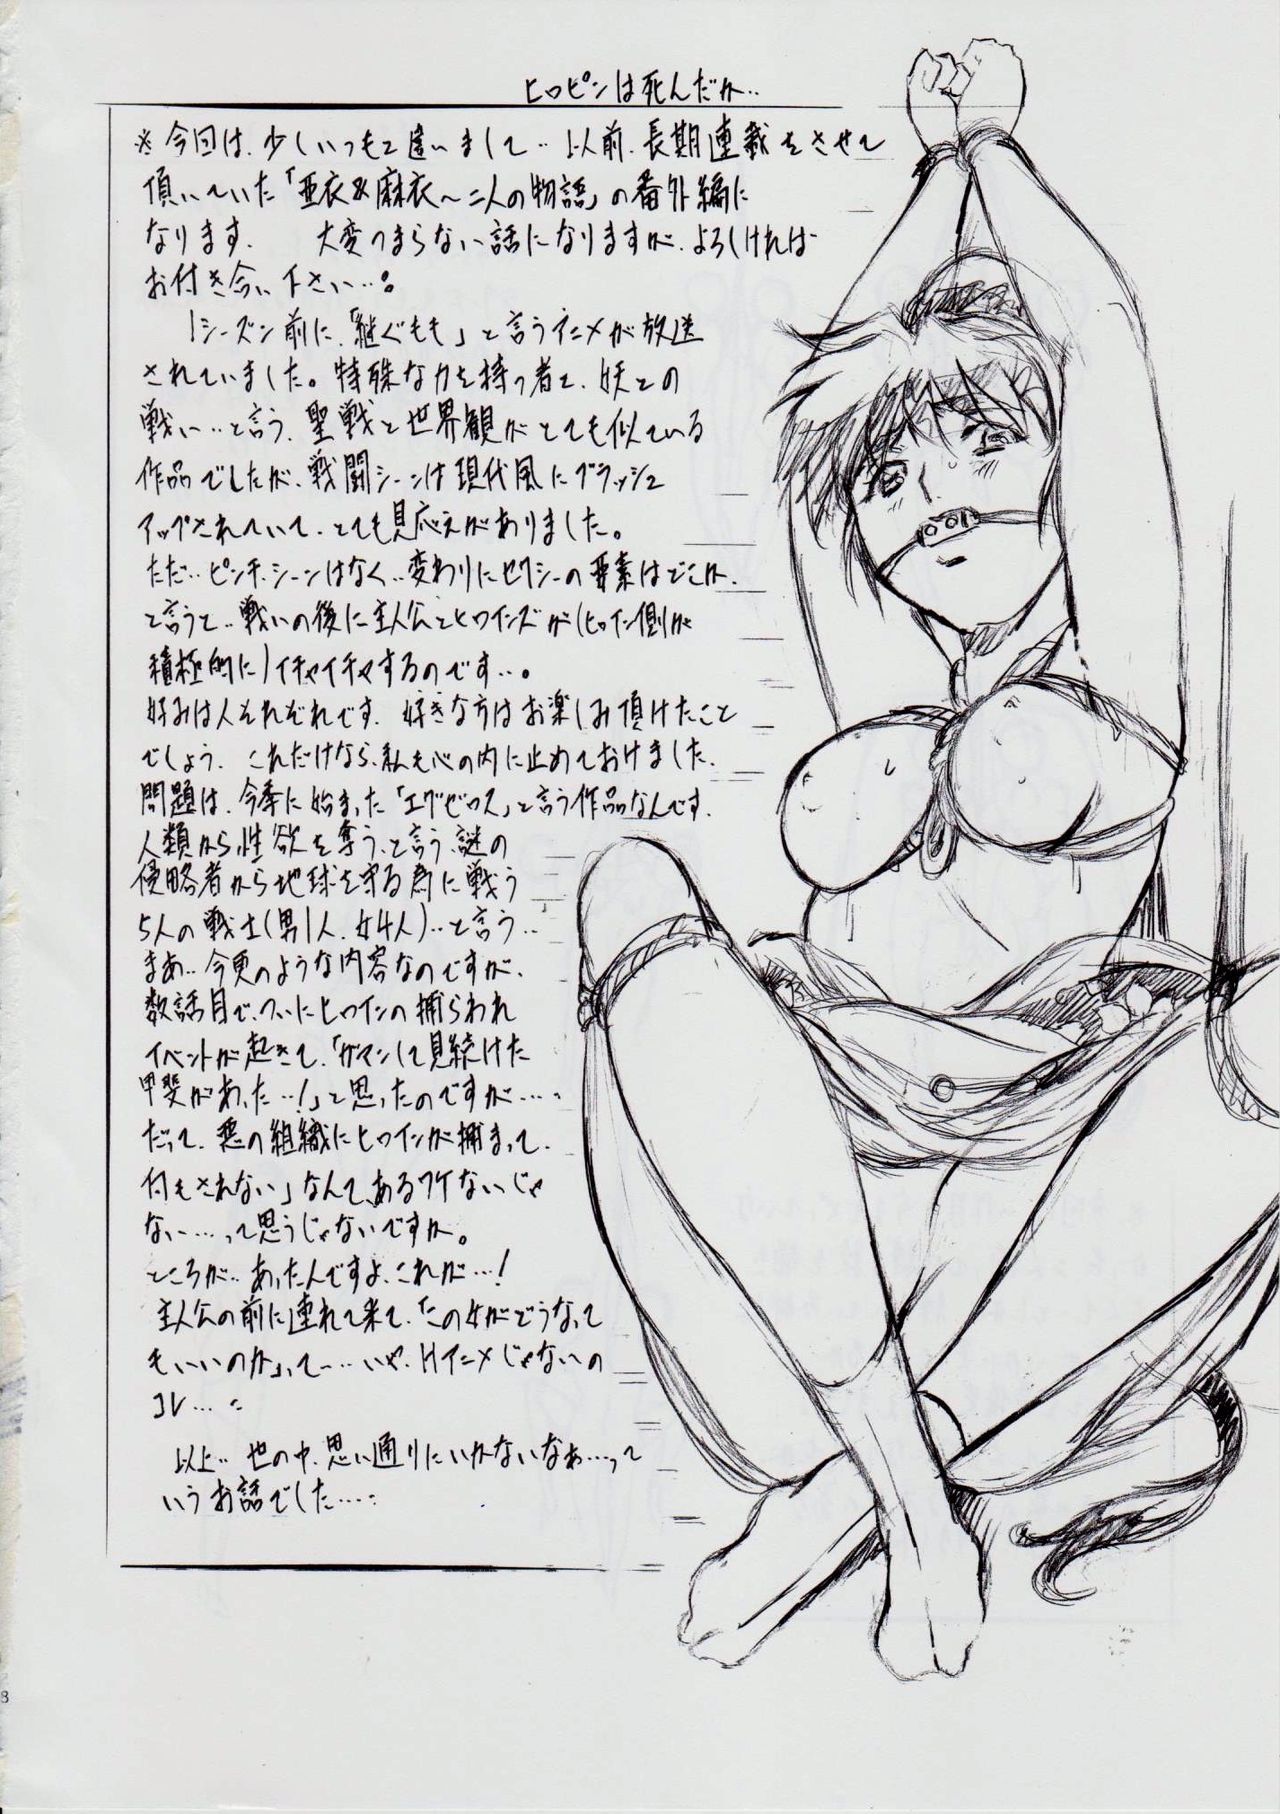 ヒロピンは死んだか‥
※今回は、少しいつもと違いまして‥以前、長期連載をさせて
頂いていた「亜衣&麻衣～二人の物語」の番外編に
なります。 大変つまらない話になりますが、よろしければ
お付き合い下さい‥。
1シーズン前に、「継ぐもも」と言うアニメが放送
されていました。特殊な力を持つ者と、妖との
戦い‥と言う、聖戦と世界観がとても似ている
作品でしたが、戦闘シーンは現代風にブラッシュ
アップされていて、とても見応えがありました。
ただ‥ピンチシーンはなく‥変わりにセクシーの要素はどこか、
と言うと‥戦いの後に主人公とヒロインズが(ヒロイン側が
積極的に)イチャイチャするのです…。
好みは人それぞれです。好きな方はお楽しみ頂けたこと
でしょう。これだけなら、私も心の内に止めておけました。
問題は、今季に始まった「エグゼロス」と言う作品なんです。
人類から、性欲を奪う、と言う、謎の
侵略者から地球を守る為に戦う
5人の戦士(男1人、女4人)‥と言う‥
まあ‥今更のような内容なのですが、
数話目で、ついにヒロインの捕らわれ
イベントが起きて、「ガマンして見続けた
甲斐があった‥!」と思ったのですが……
だって、悪の組織にヒロインが捕まって、
何もされない」なんて、あるワケないじゃ
ない……って思うじゃないですか。
ところが‥あったんですよ、これが…!
主人公の前に連れて来て、「この女がどうなって
もいいのか」って……いや、Hアニメじゃないの
コレ……
以上‥世の中、思い通りにいかないなぁ……って
いうお話でした……
8